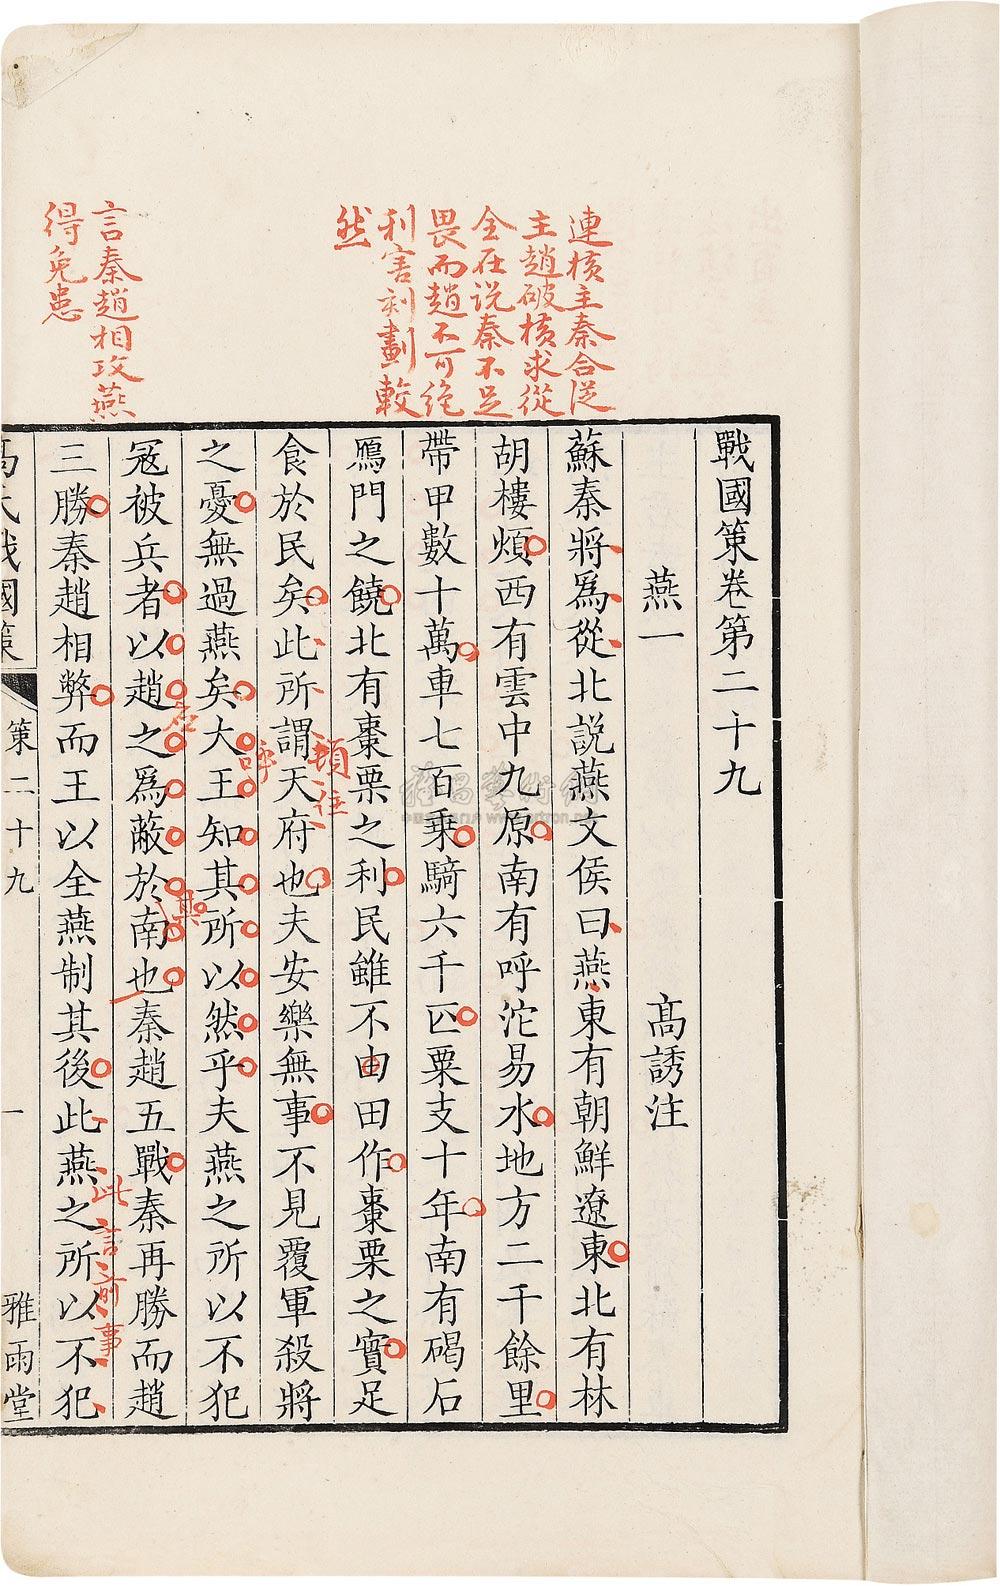 連橫主秦合從
主趙破橫求從
全在説秦不足
畏而趙不可絶
利害刻劃較
然
言秦趙相攻燕
得免患
戰國策卷第二十九
燕一 高誘注
蘇秦將爲從北説燕文侯曰燕東有朝鮮遼東北有林
胡樓煩西有雲中九原南有呼沱易水地方二千餘里
帶甲數十萬車七百乘騎六千匹粟支十年南有碣石
鴈門之饒北有棗栗之利民雖不由田作棗栗之實足
食於民矣此所謂天府也夫安樂無事不見覆軍殺將
頓住
之憂無過燕矣大王知其所以然乎夫燕之所以不犯
呼
冦被兵者以趙之爲蔽於南也秦趙五戰秦再勝而趙
應
其
三勝秦趙相弊而王以全燕制其後此燕之所以不犯
此言前事
高氏戰國策 第二十九 一 雅雨堂